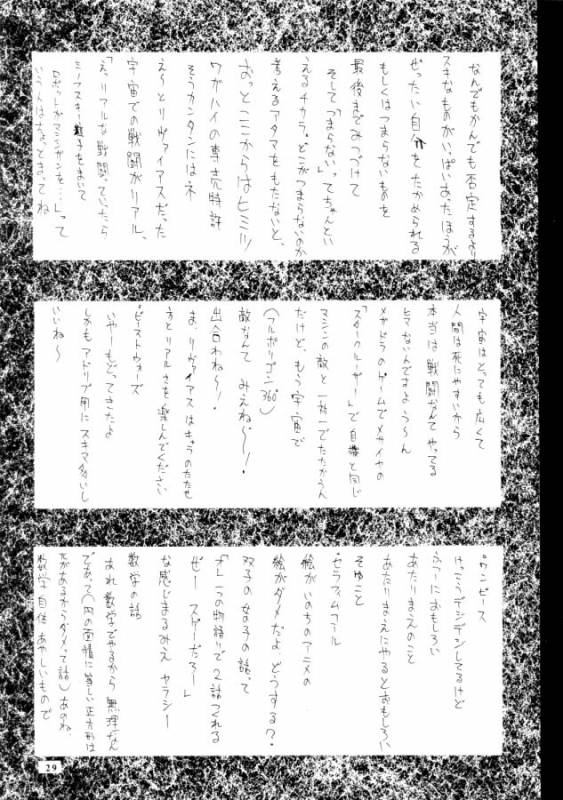 なんでもかんでも否定するより
スキなものがいっぱいあったほうが
ぜったい自分をたかめられる
もしくはつまらないものを
最後までみつづけて
そして「つまらない」ってちゃんといい
えるチカラ。どこがつまらないのか
考えるアタマをもたないと、
おっとここからはヒミツ!
ワガハイの専売特許
そうカンタンにはネ
え〜とリヴァイアスだった
宇宙での戦闘がリアル、
「え、リアルな戦闘」っていったら
ミノフスキー粒子をまいて
ロボットが
いう人はちょっとまってね
宇宙はとっても広くて
人間は死にやすいから
本当は戦闘なんてやってる
ヒマないんですよ う〜ん
メガドラのゲームでメサイヤの
「スタークルーザー」で自機と同じ
マシンの敵と一対一でたたかうん
だけど、もう宇宙で
(フルポリゴン360°)
敵なんて みえね〜〜!
出合わね〜!
ま、リヴァイアスはキャラのたたせ
方とリアルさを楽しんでください
・ビーストウォーズ
いやーもどってきたよ
しかもアドリブ用にスキマ多いし
いいね〜
・ワンピース
けっこうデンデンしてるけど
ふつーにおもしろい
あたりまえのこと
あたりまえにやるとおもしろい
そゆこと
・セラフィムコール
絵がいのちのアニメの
絵がダメだよ どうする?・
双子の女の子の話って
「オレ一つの物語りで2話つくれる
ぜー スゲーだろー」
な感じまるみえ ヤラシー
数学の話
あれ数学でやるから 無理なん
であって(円の面積に等しい正方形は
があるからダメって話)あのね、
数学自体あやしいもので
29